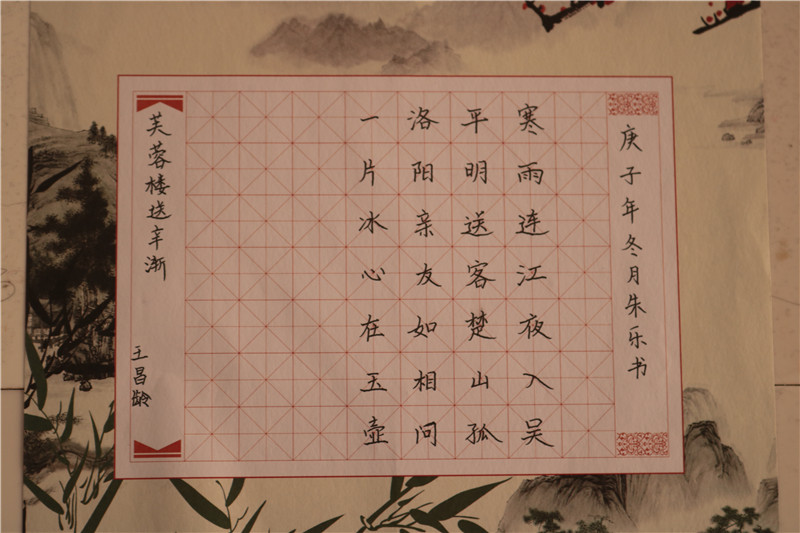 庚子年冬月朱乐书
寒雨连江夜入吴
平明送客楚山孤
洛阳亲友如相问
一片冰心在玉壶
芙蓉楼送辛渐
王昌龄